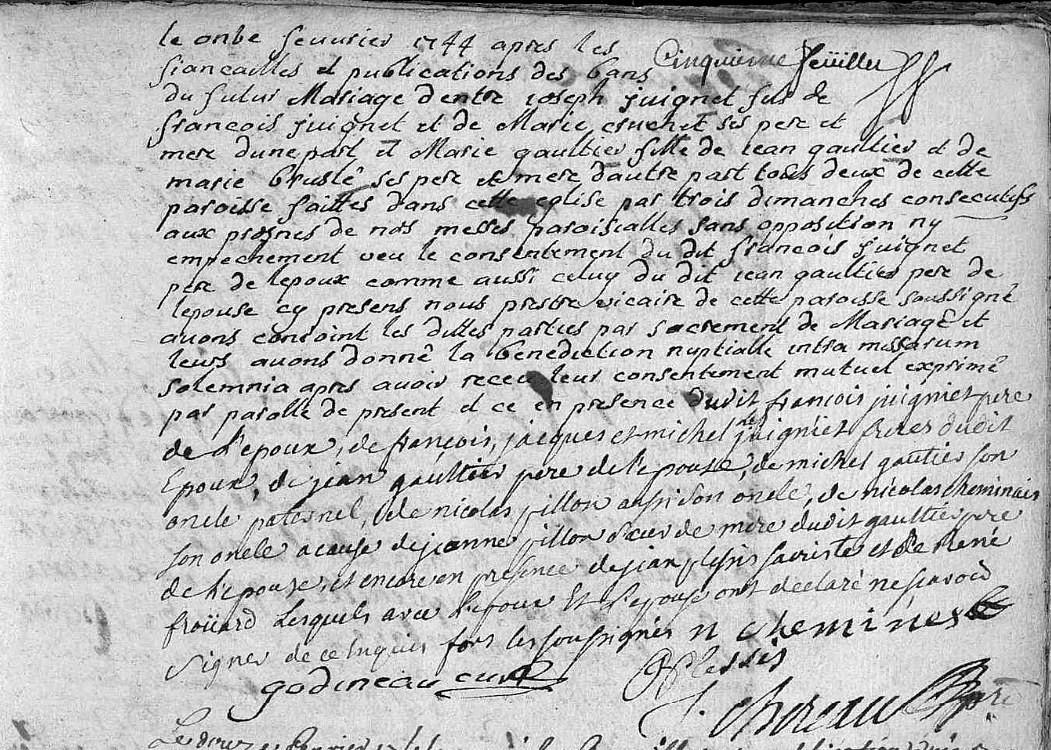 le onbe feuvrier 1744 apres les
Cinquieme feüillet
fiancailles et publications des bans
du futur Mariage d'entre joseph juignet fils de
francois juignet et de Marie cruchet ses pere et
mere dune part et Marie gaultier fille de jean gaultier et de
marie bruslé ses pere et mere d'autre part tous deux de cette
paroisse faittes dans cette eglise par trois dimanches consecutifs
aux prosnes de nos messes paroissialles sans opposition ny
empechement veu le consentement du dit francois juignet
pere de lepoux comme aussi celuy du dit jean gaultier pere de
lepouse cy presens nous prestre vicaire de cette paroisse soussigné
avons conjoint les dittes parties par sacrement de Mariage et
leurs avons donné la benediction nuptialle intra missarum
solemnia apres avoir receu leur consentement mutuel exprimé
par parolle de present et ce en presence dudit francois juigniet pere
de l'epoux, de francois, jacques et michel les juigniet freres dudit
Epoux, de jean gaultier pere de l'epouse, de michel gautier son
oncle paternel, de nicolas pillon aussi son oncle, de nicolas cheminais
son oncle a cause de jeanne pillon soeur de mere dudit gaultier pere
de l'epouse, et encore en presence de jean plessis sacriste et de René
froüard Lesquels avec l'epoux Et l'epouse ont declaré ne scavoir
signer de ce Enquis fors les soussignés n chemines
godineau curé
Plessis
J. choreau ptre
Le douze fevrier